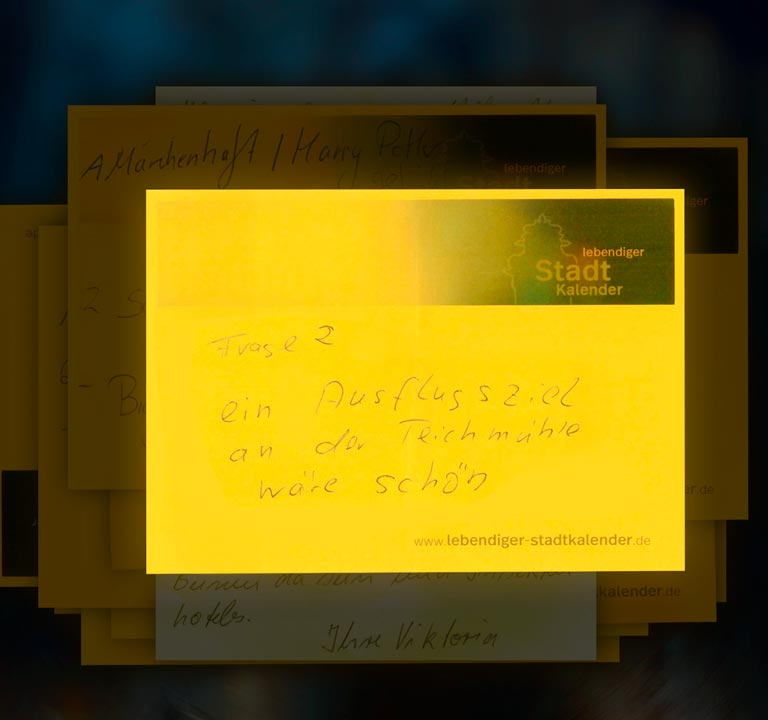 A Märchenhaft / Harry Potter
lebendiger
lebendiger
Stadt
Kalender
Frage 2
ein Ausflugsziel
an der Teichmühle
wäre schön
www.lebendiger-stadtkalender.de
kalender.de
hotels.
Ihre Viktoria